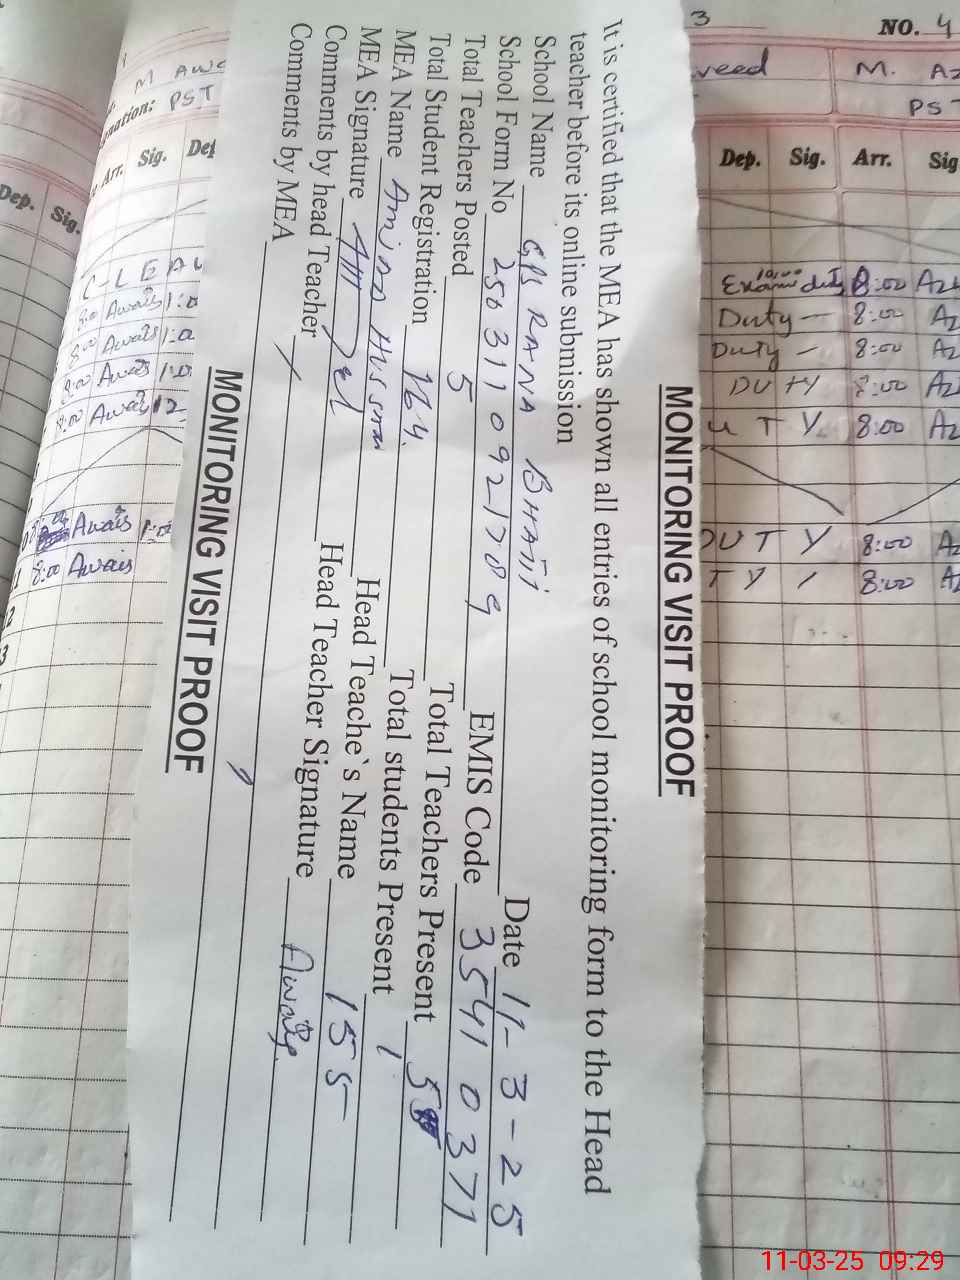 MONITORING VISIT PROOF
It is certified that the MEA has shown all entries of school monitoring form to the Head
teacher before its online submission
School Name GPS RANA BHATTI Date 11-3-25
School Form No 2503110921789 EMIS Code 35410371
Total Teachers Posted 5 Total Teachers Present 5
Total Student Registration 164 Total students Present 1
MEA Name Amjad Hussain Head Teache`s Name 155
MEA Signature Head Teacher Signature Awais
Comments by head Teacher
Comments by MEA
MONITORING VISIT PROOF
3
NO. 4
M Awa
veed
M. Az
nation: PST
PST
Dep. Sig.
Arr. Sig. Dep
Dep. Sig. Arr. Sig
C-LEAV
10:00
Exam duty 8:00 Az
8:00 Awais 1:0
Duty 8:00 Az
8:00 Awais 1:0
Duty 8:00 Az
8:00 Awais 1:0
DUTY 8:00 Az
8:00 Awais 12
U T Y 8:00 Az
Awais 1:0
DUT Y 8:00 Az
8:00 Awais
T Y 8:00 Az
2
3
11-03-25 09:29